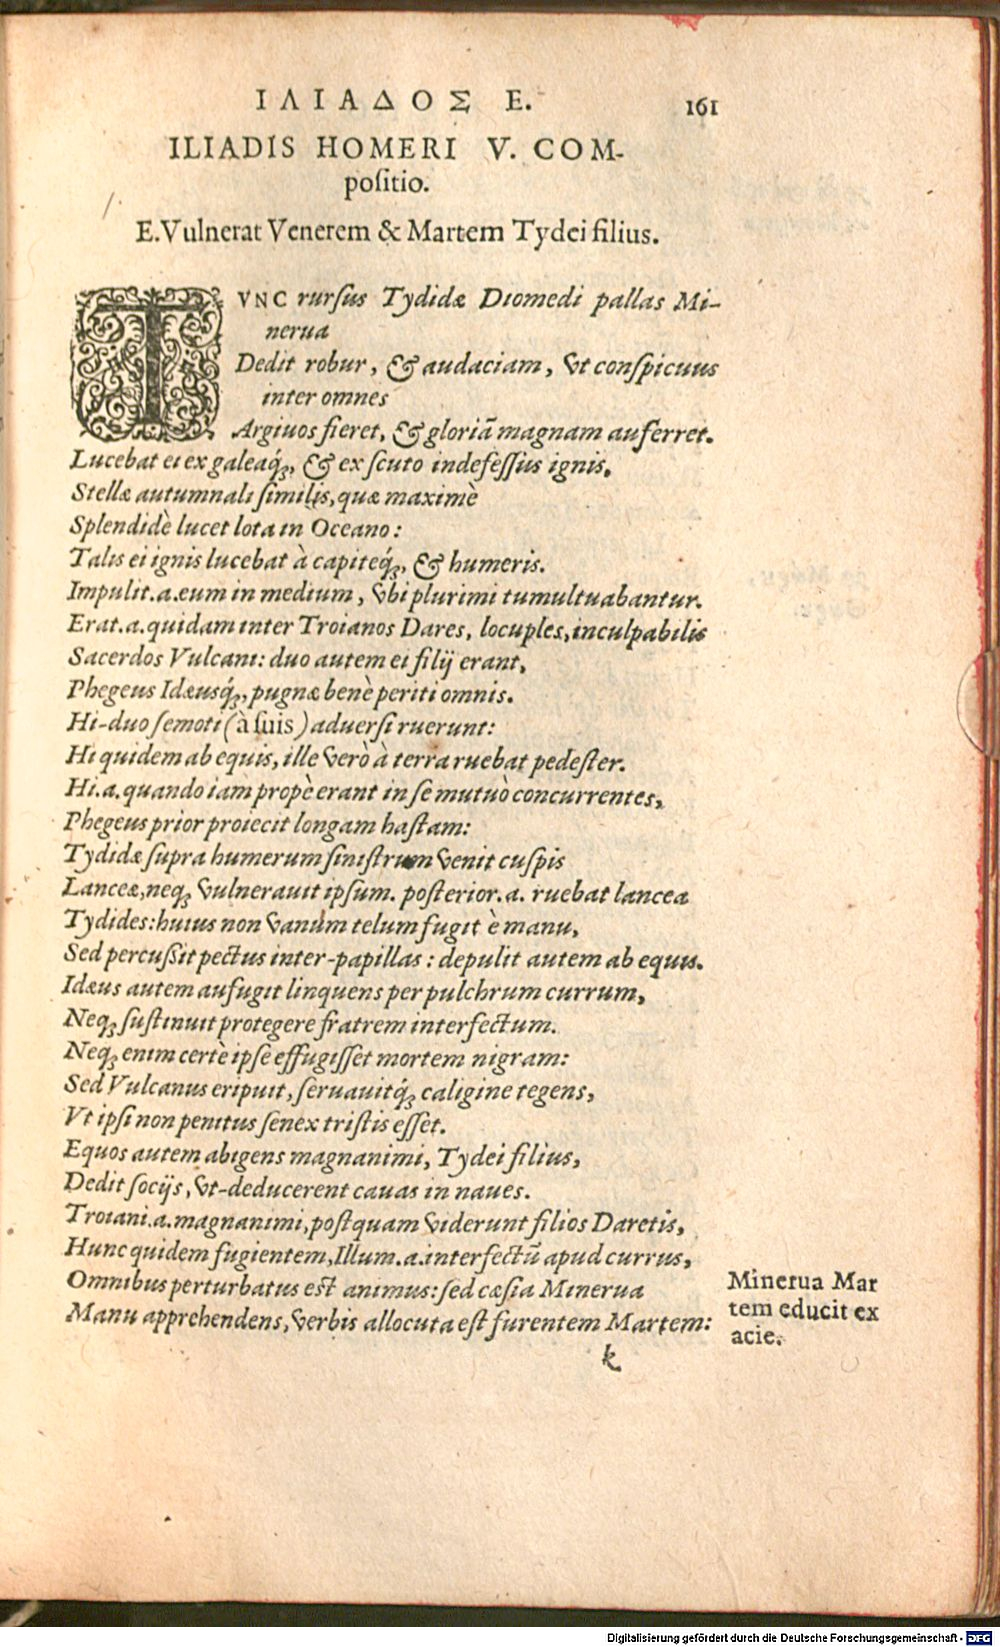 ΙΛΙΑΔΟΣ Ε. 161
ILIADIS HOMERI V. COM-
poſitio.
E. Vulnerat Venerem & Martem Tydei filius.
TVNC rurſus Tydidæ Diomedi pallas Mi-
nerua
Dedit robur, & audaciam, vt conſpicuus
inter omnes
Argiuos fieret, & gloriã magnam auferret.
Lucebat ei ex galeaq́ꝫ, & ex ſcuto indefeſſus ignis,
Stellæ autumnali ſimilis, quæ maximè
Splendidè lucet lota in Oceano:
Talis ei ignis lucebat à capiteq́ꝫ, & humeris.
Impulit.a.eum in medium, vbi plurimi tumultuabantur.
Erat.a.quidam inter Troianos Dares, locuples, inculpabilis
Sacerdos Vulcani: duo autem ei filij erant,
Phegeus Idæusq́ꝫ, pugnæ benè periti omnis.
Hi-duo ſemoti (à ſuis) aduerſi ruerunt:
Hi quidem ab equis, ille verò à terra ruebat pedeſter.
Hi.a.quando iam propè erant in ſe mutuò concurrentes,
Phegeus prior proiecit longam haſtam:
Tydidæ ſupra humerum ſiniſtrum venit cuſpis
Lanceæ, neqꝫ vulnerauit ipſum. poſterior.a. ruebat lancea
Tydides: huius non vanum telum fugit è manu,
Sed percuſſit pectus inter-papillas: depulit autem ab equis.
Idæus autem aufugit linquens per pulchrum currum,
Neqꝫ ſuſtinuit protegere fratrem interfectum.
Neqꝫ enim certè ipſe effugiſſet mortem nigram:
Sed Vulcanus eripuit, ſeruauitq́ꝫ caligine tegens,
Vt ipſi non penitus ſenex triſtis eſſet.
Equos autem abigens magnanimi, Tydei filius,
Dedit ſocijs, vt-deducerent cauas in naues.
Troiani.a.magnanimi, poſtquam viderunt filios Daretis,
Hunc quidem fugientem, Illum.a.interfectũ apud currus,
Omnibus perturbatus eſt animus: ſed cæſia Minerua
Manu apprehendens, verbis allocuta eſt furentem Martem:
Minerua Mar
tem educit ex
acie.
k
Digitalisierung gefördert durch die Deutsche Forschungsgemeinschaft - DFG